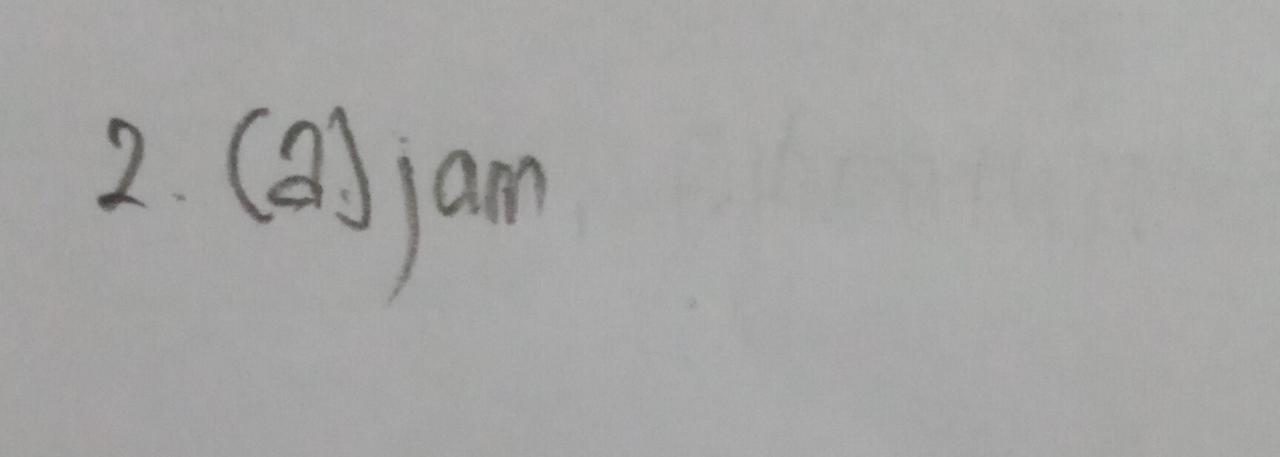 2. (a) jam